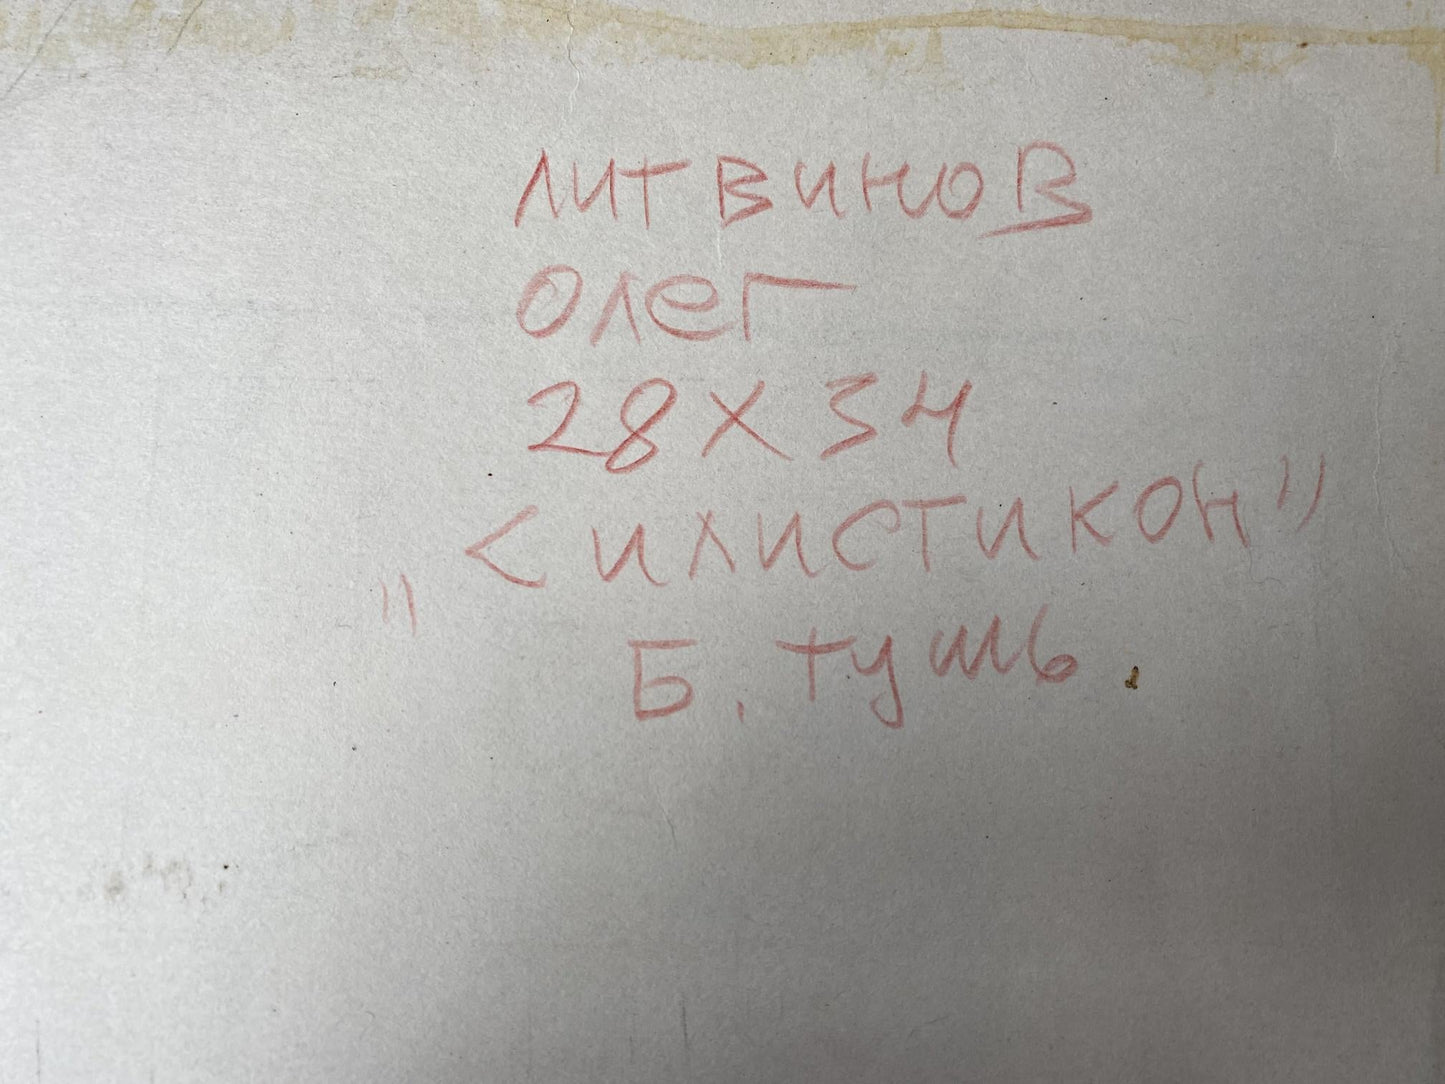 ЛИТВИНОВ
ОЛЕГ
28 X 34
„СИЛИСТИКОН"
Б. ТУШЬ